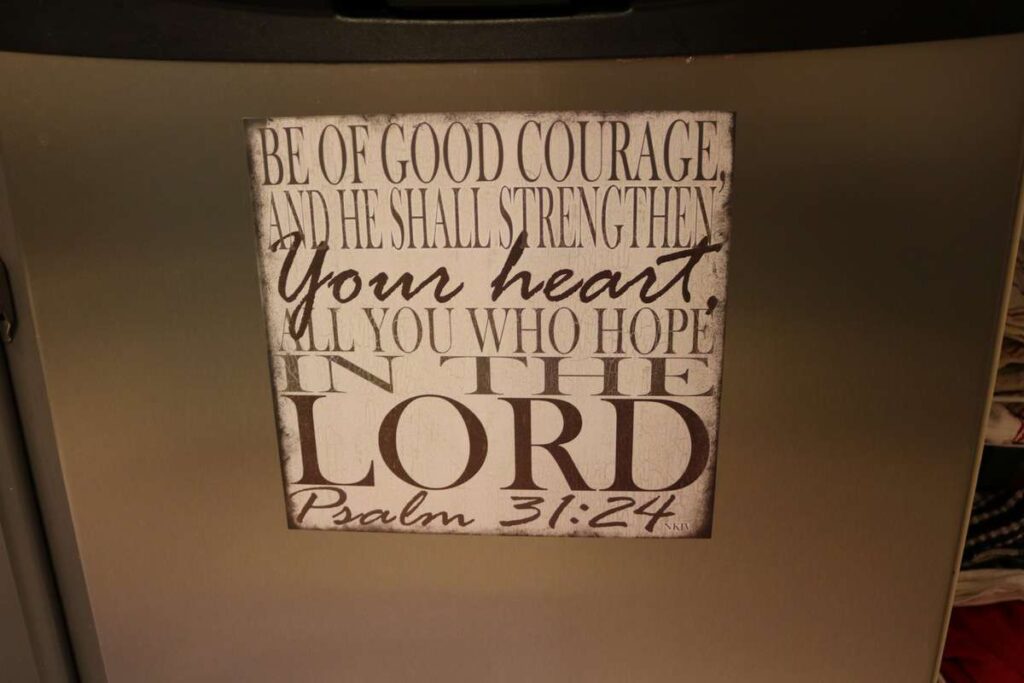 BE OF GOOD COURAGE,
AND HE SHALL STRENGTHEN
Your heart,
ALL YOU WHO HOPE
IN THE
LORD
Psalm 31:24
NKJV